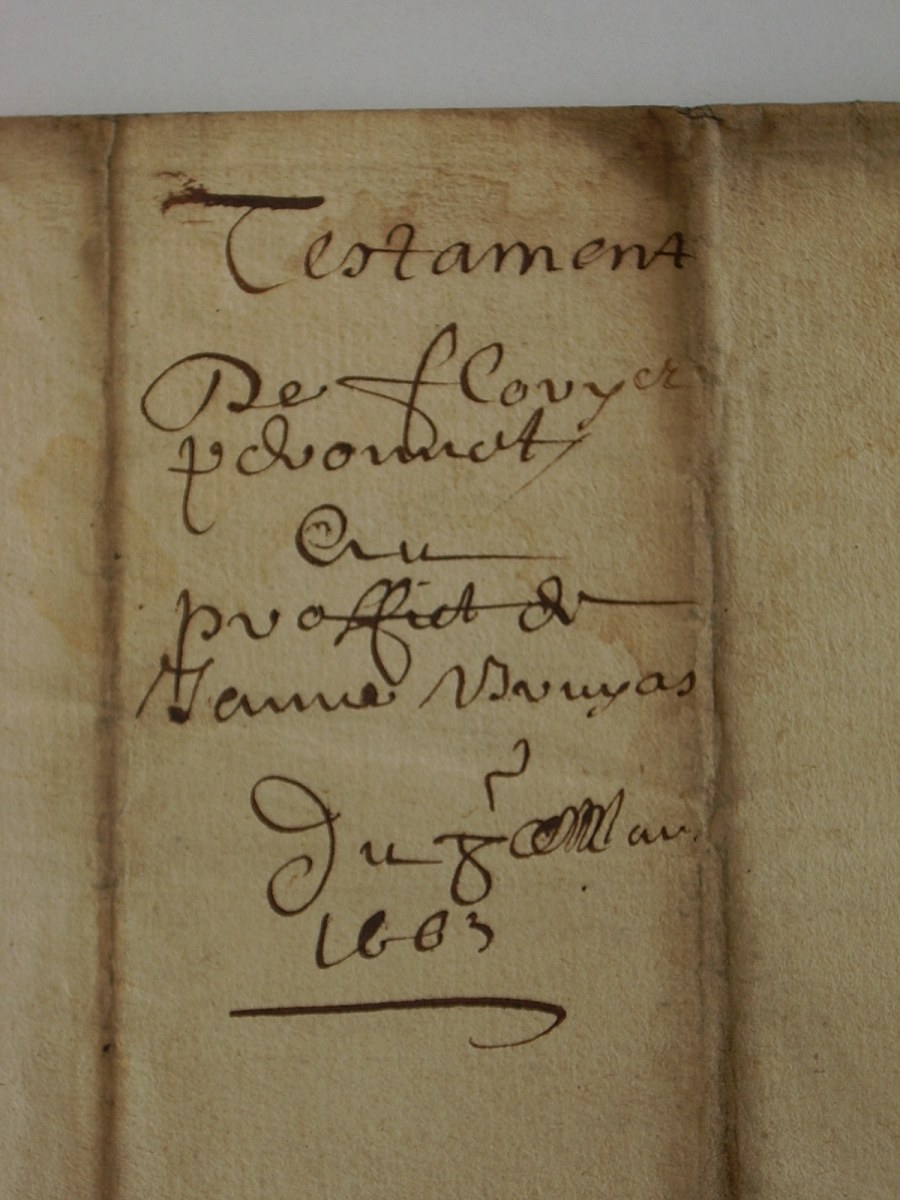 Testament
De flouyer
peronnet
Au
proffict de
Janne Bruyas
Du 8e Mar
1663